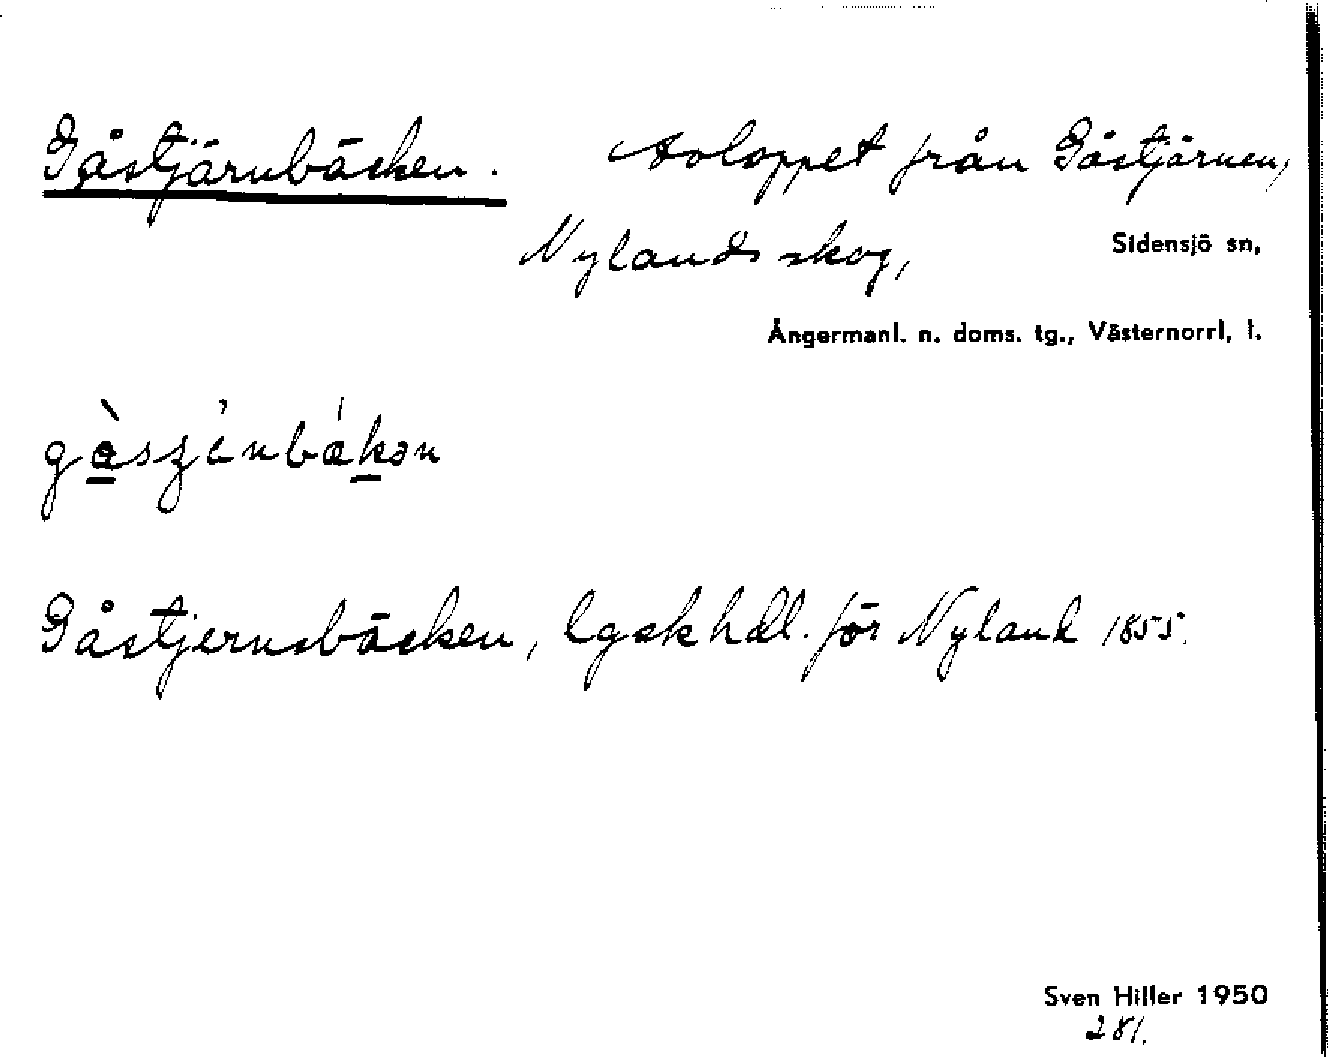 Gåstjärnbäcken. Avloppet från Gåstjärnen,
Nylands skog, Sidensjö sn,
Ångermanl. n. doms. tg., Västernorrl. l.
Gåstjernsbäcken, lgsk hdl. för Nyland 1855.
Sven Hiller 1950
281.